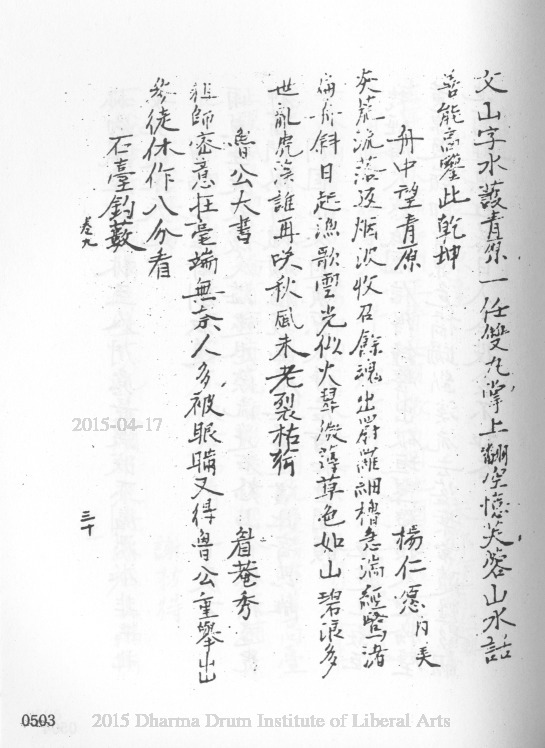 文山字水護青原一任雙丸掌上翻空憶芙蓉山水話
善能高鑒此乾坤
舟中望青原
楊仁愿內美
炎荒流落返烟波收召餘魂出罻羅細櫓急湍經鷺渚
扁舟斜日起漁歌雲光似火翠微薄草色如山碧浪多
世亂虎溪誰再咲秋風未老裂枯荷
魯公大書
眉菴秀
祖師密意在毫端無奈人多被眼瞞又得魯公重舉出
參徒休作八分看
石臺釣藪
卷九
三十
2015-04-17
0503
2015 Dharma Drum Institute of Liberal Arts